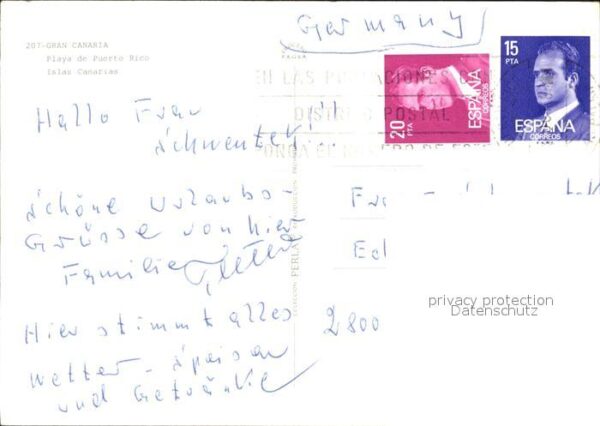 207-GRAN CANARIA
Playa de Puerto Rico
Islas Canarias
Germany
20 PTA
ESPAÑA
CORREOS
15 PTA
ESPAÑA
CORREOS
EN LAS POBLACIONES
DISTRITO POSTAL
PONGA EL NUMERO DE
Hallo Frau
Schwenter!!
schöne Urlaubs-
Grüsse von hier
Familie
Hier stimmt alles
Wetter - Speisen
und Getränke
PERLA
2800
privacy protection
Datenschutz